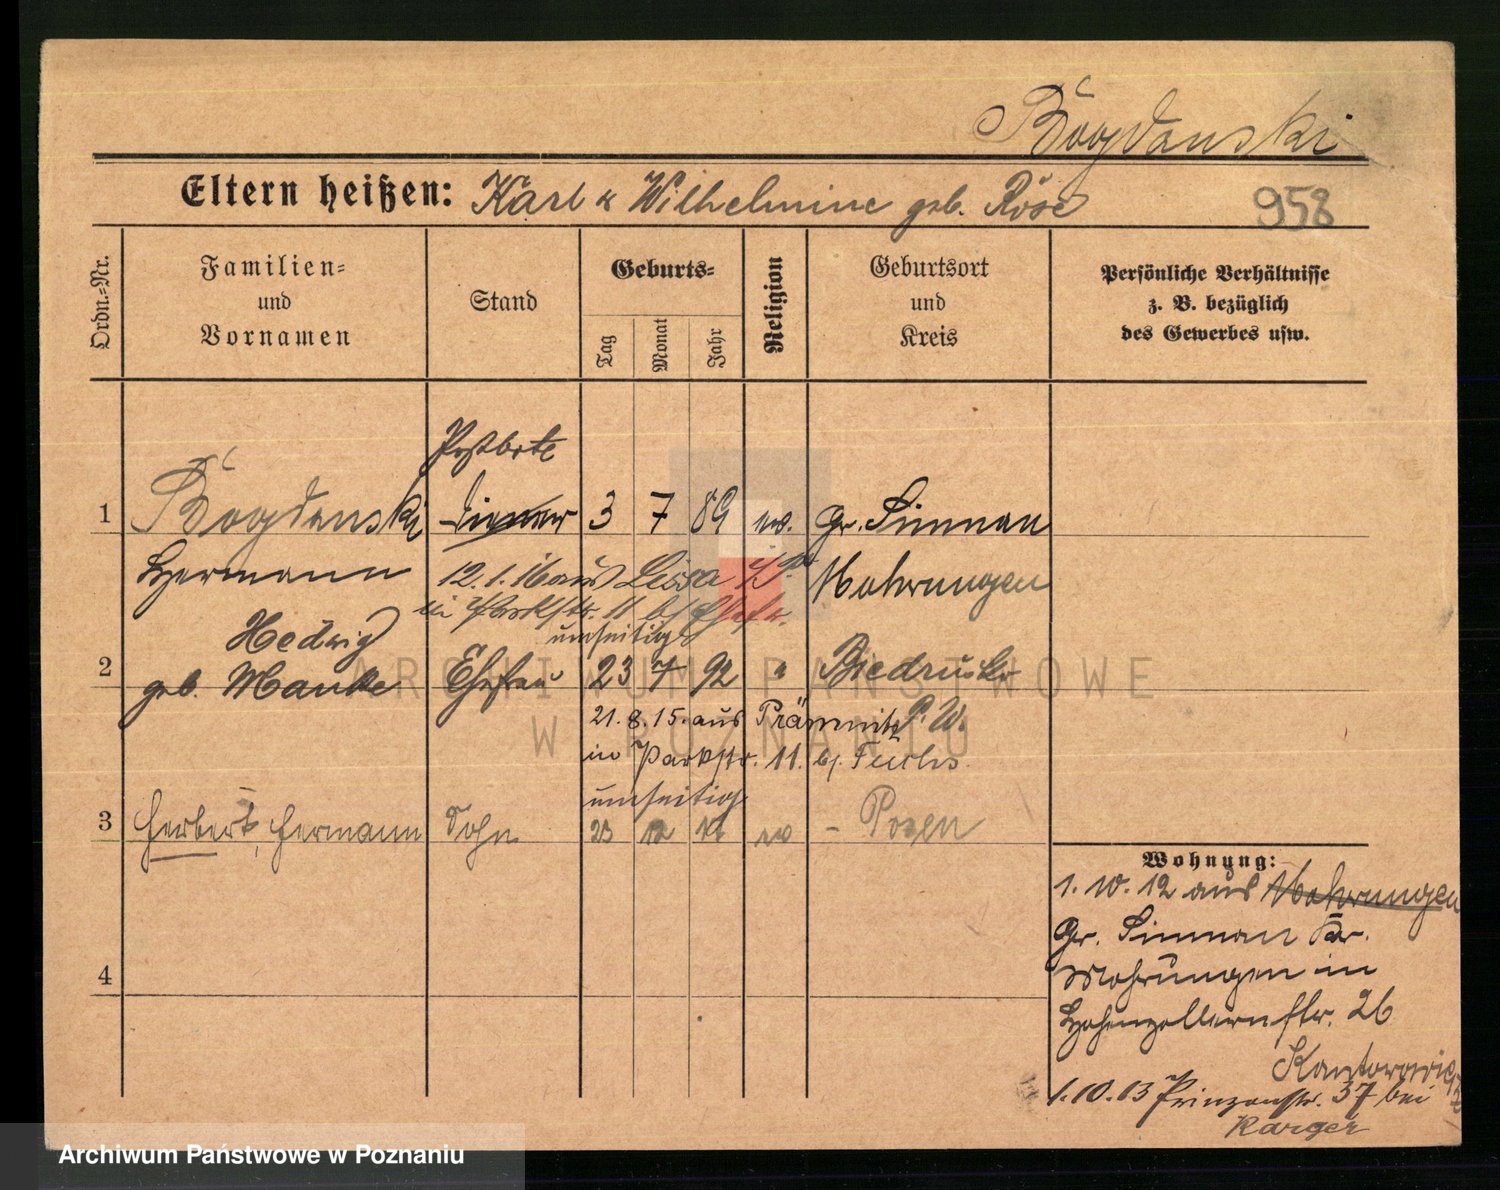 Bogdanski
Eltern heißen: Karl u Wilhelmine geb. Rose
958
Ordn.-Nr.
Familien-
und
Vornamen
Stand
Geburts-
Tag
Monat
Jahr
Religion
Geburtsort
und
Kreis
Persönliche Verhältnisse
z. B. bezüglich
des Gewerbes usw.
Postbote
1 Bogdanski Diener 3 7 89 ev. Gr. Simnau
Hermann 12. 1. 16 aus Lissa Mohrungen
in Parkstr. 11
umseitig
Hedwig
2 geb. Manke Ehefrau 23 7 92 " Biedrusko
21. 8. 15. aus P. W.
in Parkstr. 11. bj. Fuchs.
umseitig
3 Herbert, Hermann Sohn 23 12 ev - Posen
4
Wohnung:
1. 10. 12 aus Mohrungen
Gr. Simnau Kr.
Mohrungen in
Hohenzollernstr. 26
Kantorowicz
1. 10. 13 Prinzenstr. 37 bei
Karger
ARCHIWUM PAŃSTWOWE
W POZNANIU
Archiwum Państwowe w Poznaniu